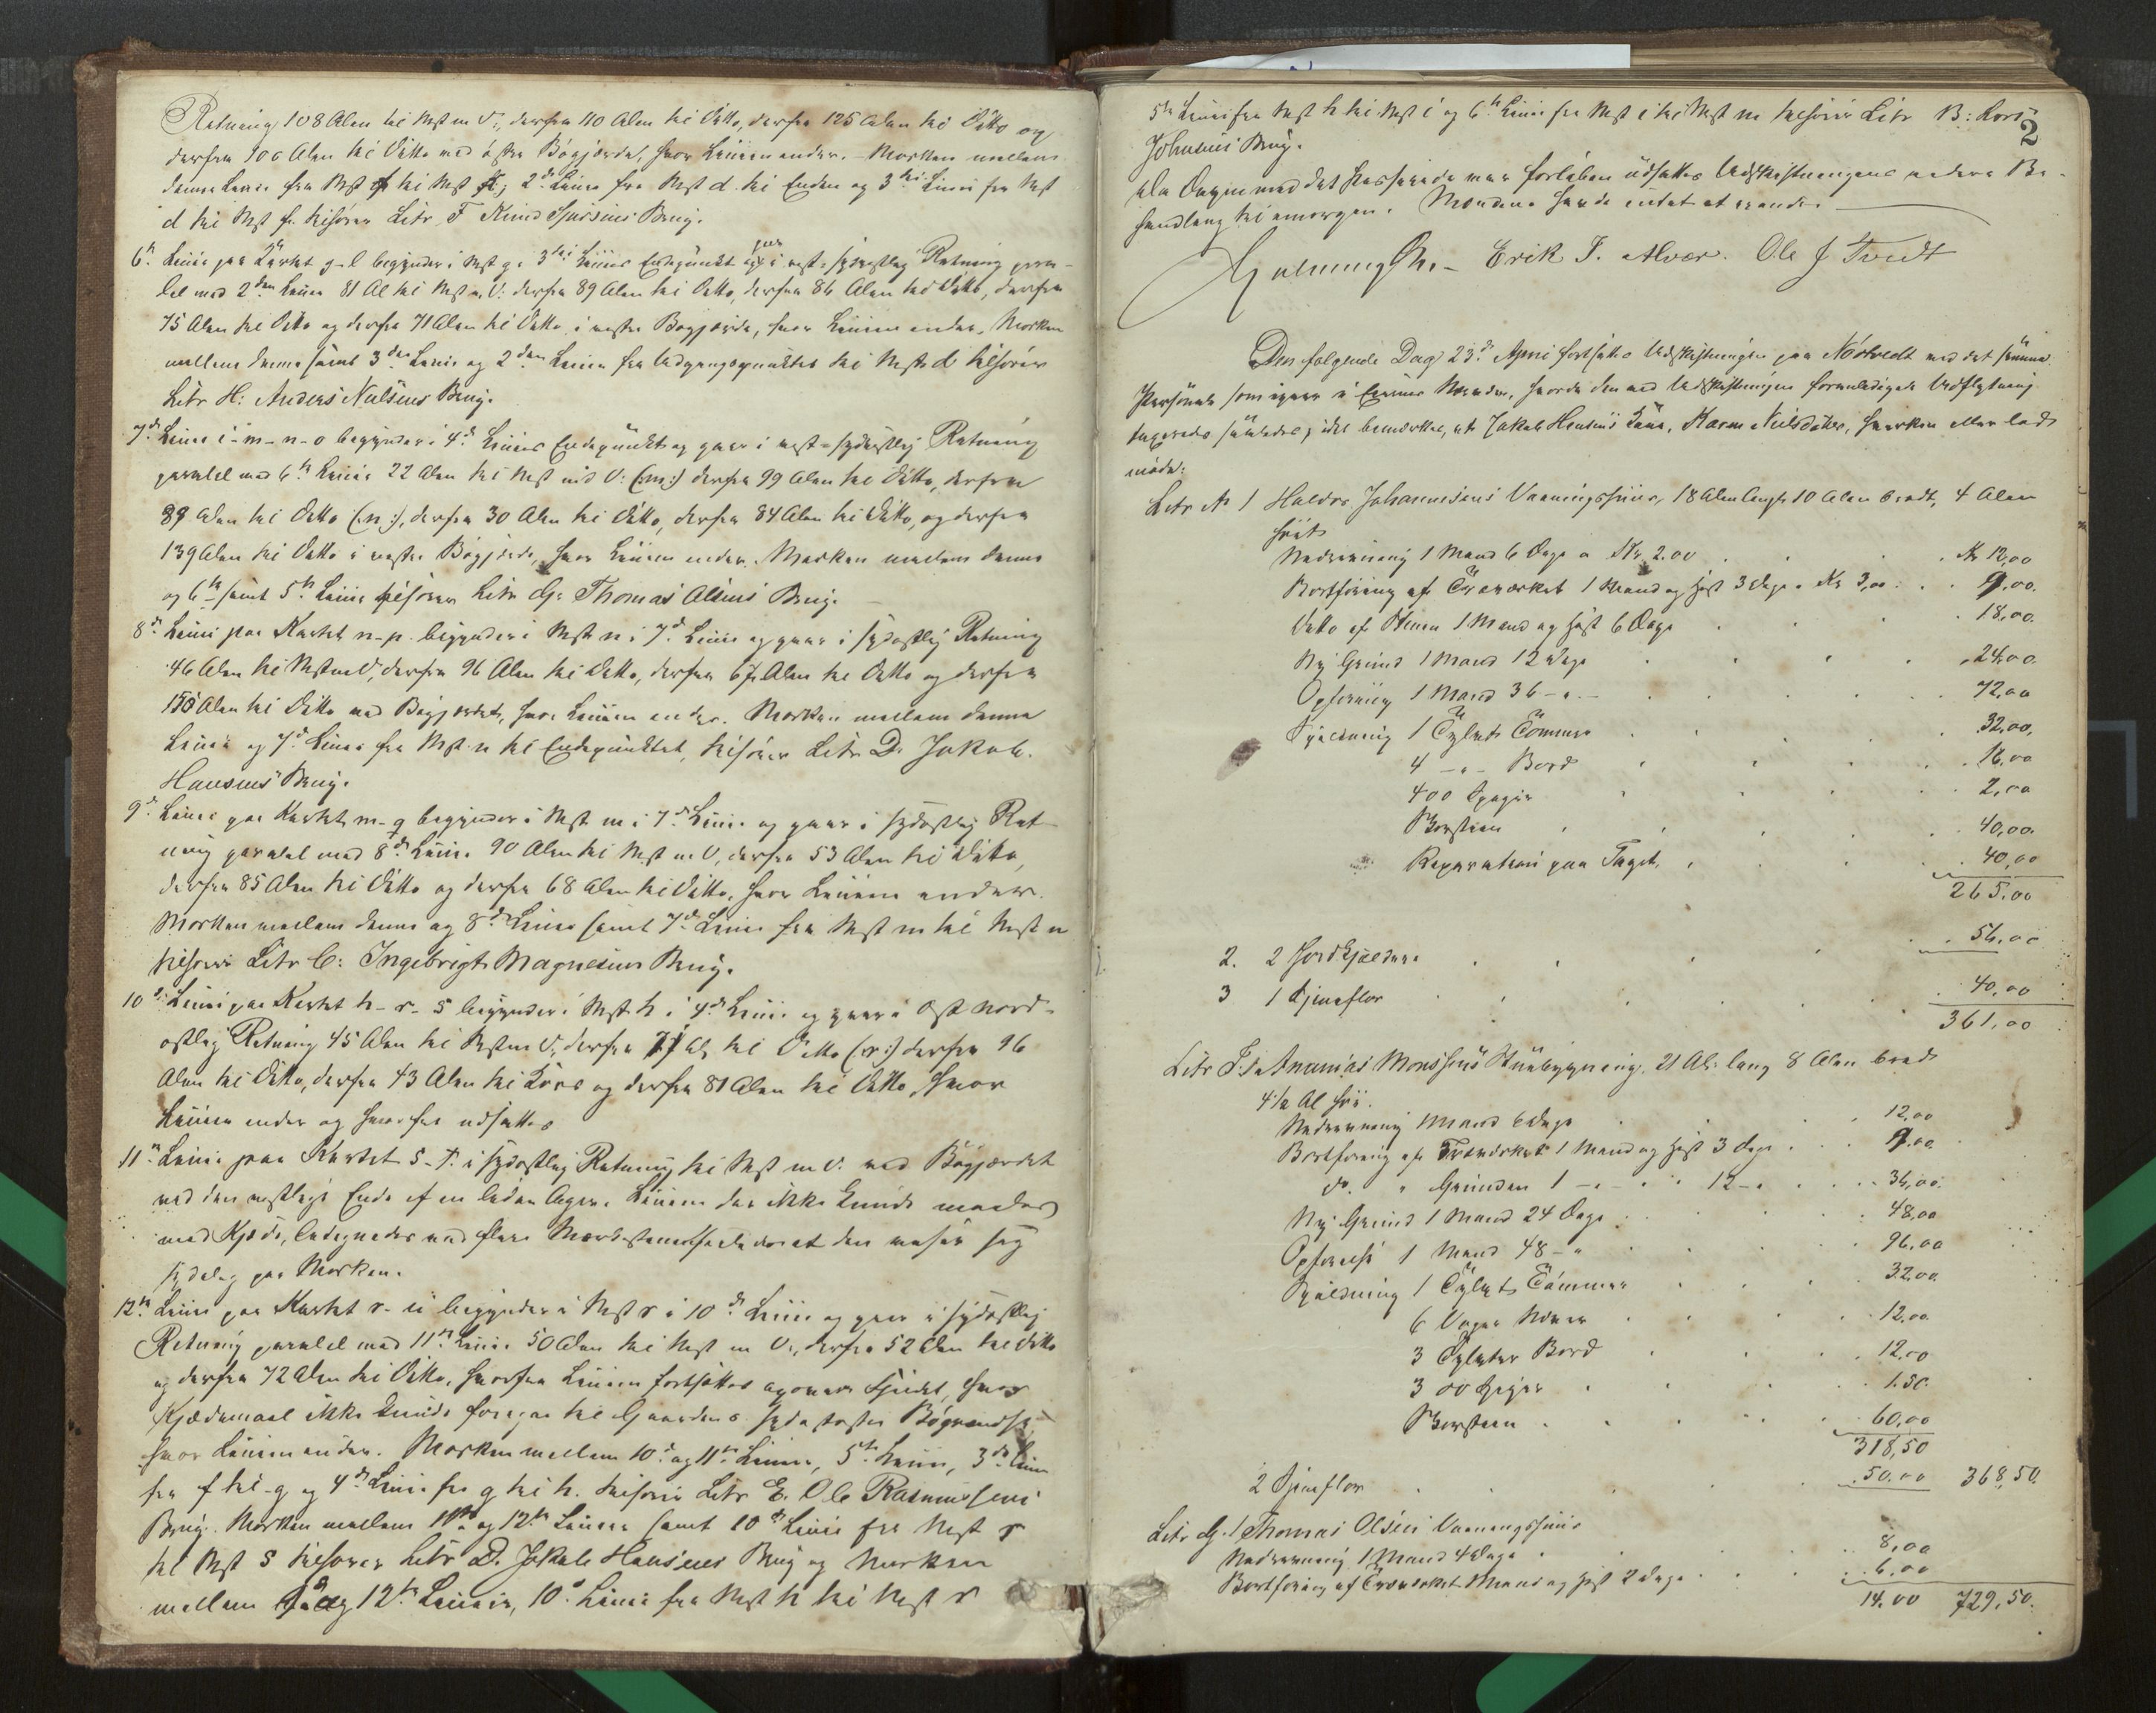 Retning 108 Alen til Mst m V., derfra 110 Alen til Ditto, derfra 125 Alen til Ditto og
derfra 100 Alen til Ditto ved østre Bøgjerde, hvor Linien ender. Marken mellem
denne Linie fra Mst f til Mst k, 2d Linie fra Mst d til Enden og 3die Linie fra Mst
d til Mst f. tilhører Litr F Knud Sjursens Brug.
6te Linie paa Kartet g-l begynder i Mst g. 3die Linies Endepunkt og gaar i vest-sydvestlig Retning paral-
lel med 2den Linie 81 Al til Mst m. V: derfra 89 Alen til Ditto, derfra 86 Alen til Ditto, derfra
75 Alen til Ditto og derfra 71 Alen til Ditto i vestre Bøgjerde, hvor Linien ender. Marken
mellem denne samt 3die Linie og 2den Linie fra Udgangspunktet til Mst d tilhører
Litr H: Anders Nielsens Brug.
7de Linie i-m-n-o begynder i 4de Linies Endepunkt og gaar i vest-sydvestlig Retning
parallel med 6te Linie 22 Alen til Mst md V: (:m:) derfra 99 Alen til Ditto, derfra
89 Alen til Ditto (:n:), derfra 30 Alen til Ditto, derfra 84 Alen til Ditto, og derfra
139 Alen til Ditto i vestre Bøgjerde, hvor Linien ender. Marken mellem denne
og 6te samt 5te Linie tilhører Litr G. Thomas Olsens Brug.
8de Linie paa Kartet n-p. begynder i Mst n i 7de Linie og gaar i sydøstlig Retning
46 Alen til Mst m V, derfra 96 Alen til Ditto, derfra 67 Alen til Ditto og derfra
150 Alen til Ditto ved Bøgjerdet, hvor Linien ender. Marken mellem denne
Linie og 7de Linie fra Mst n til Endepunktet, tilhører Litr D. Jakob
Hansens Brug.
9de Linie paa Kartet m-q begynder i Mst m i 7de Linie og gaar i sydøstlig Ret-
ning parallel med 8de Linie 90 Alen til Mst m V, derfra 53 Alen til Ditto,
derfra 85 Alen til Ditto og derfra 68 Alen til Ditto, hvor Linien ender.
Marken mellem denne og 8de Linie samt 7de Linie fra Mst m til Mst n
tilhører Litr C: Ingebrigt Magnesens Brug.
10de Linie paa Kartet h-r-s begynder i Mst h i 4de Linie og gaar i Øst nord-
østlig Retning 45 Alen til Mst m V., derfra 71 Al, til Ditto (:r:) derfra 96
Alen til Ditto, derfra 43 Alen til og derfra 81 Alen til Ditto, hvor
Linien ender og hvorfra udsattes
11te Linie paa Kartet s-t. i sydøstlig Retning til Mst m V. ved Bøgjerdet
ved den vestlige Ende af en liden Ager. Linien der ikke kunde maales
med Kjæde, betegnedes med flere Mærkestene saaledes at den viser sig
tydelig paa Marken.
12te Linie paa Kartet r-u begynder i Mst r i 10de Linie og gaar i sydøstlig
Retning parallel med 11te Linie 50 Alen til Mst m V., derfra 52 Alen til Ditto
og derfra 72 Alen til Ditto, hvorfra Linien fortsættes hvor
Kjædemaal ikke kunde foregaa til Gaardens Bøgrændse
hvor Linien ender. Marken mellem 10de og 11te Linie, 5te Linie, 3die Linie
fra f til g og 4de Linie fra g til h. tilhører Litr E. Ole Rasmussens
Brug. Marken mellem 11te og 12te Linier samt 10de Linie fra Mst r
til Mst s tilhører Litr D. Jakob Hansens Brug og Marken
mellem og 12te Linier, 10de Linie fra Mst h til Mst r
2
5te Linie fra Mst h til Mst i og 6te Linie fra Mst i til Mst m tilhører Litr B: Lars
Johnsens Brug.
Ola Dagen med det Passerede var forløben udsattes Udskiftningens videre Be-
handling til imorgen. Mændene havde intet at erindre.
Erik T. Alvær. Ole J Tvedt
Den følgende Dag 23de April fortsattes Udskiftningen paa Nøstvedt med det samme
Personale som igaar i Eiernes Nærvær, hvorda den ved Udskiftningen foranledigede Udflytning
taxeredes saaledes; idet bemærkes, at Jakob Hansens Kone, Karen Nielsdatter, hverken eller lod
møde:
Litr A 1 Haldor Johannesens Vaaningshuus, 18 Alen langt 10 Alen bredt, 4 Alen
høit
Nedrivning 1 Mand 6 Dage a Kr. 2.00 Kr 12,00
Bortføring af Træværket 1 Mand og Hest 3 Dage a Kr 3,00 9,00.
Ditto af Stenen 1 Mand og Hest 6 Dage 18,00.
Ny Grund 1 Mand 12 Dage 24,00.
Opførning 1 Mand 36 - " - 72,00
Spildning 1 Tylvt Tømmer 32,00,
4 - " - Bord 16,00
400 Spiger 2,00
Skorsteen 40,00.
Reparation paa Taget, 40,00
265.00
2. 2 Jordkjældere 56,00
3 1 Steenflor 40,00
361,00
Litr F. 1. Ananias Monssøns Stuebygning 21 Al: lang 8 Alen bred
4 1/2 Al høi.
Nedrivning 1 Mand 6 Dage 12,00
Bortføring af Træværket 1 Mand og Hest 3 Dage 9,00
do. " Grunden 1 - " - " 12 - " 36,00.
Ny Grund 1 Mand 24 Dage 48,00
Opførelse 1 Mand 48 - " 96,00
Spildning 1 Tylvt Tømmer 32,00.
6 Voger Næver 12,00.
3 Tylvter Bord 12,00
300 Spiger 1.50.
Skorsteen 60,00
318,50
2 Steenflor 50.00 368,50.
Litr G. 1 Thomas Olsens Vaaningshuus
Nedrivning 1 Mand 4 Dage 8,00
Bortføring af Træværket 1 Mand og Hest 2 Dage 6,00
14.00 729,50.